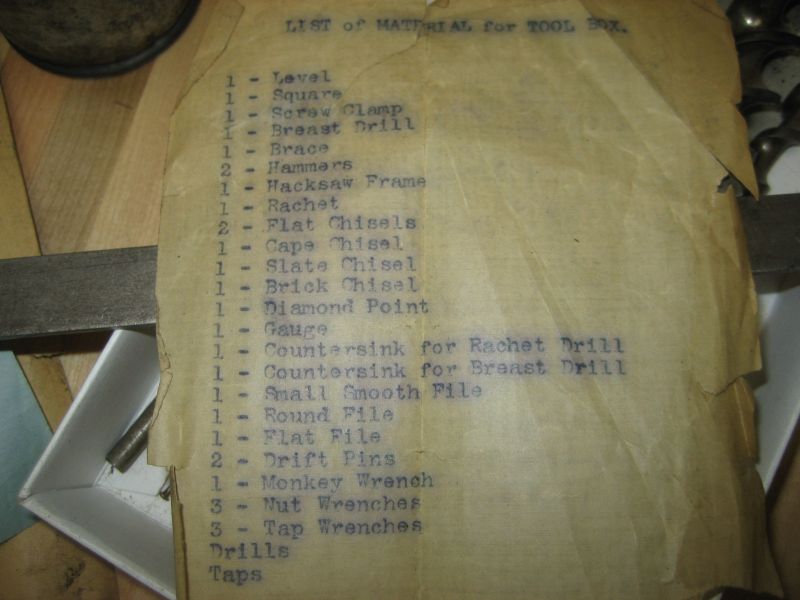 LIST of MATERIAL for TOOL BOX.
1 - Level
1 - Square
1 - Screw Clamp
1 - Breast Drill
1 - Brace
2 - Hammers
1 - Hacksaw Frame
1 - Rachet
2 - Flat Chisels
1 - Cape Chisel
1 - Slate Chisel
1 - Brick Chisel
1 - Diamond Point
1 - Gauge
1 - Countersink for Rachet Drill
1 - Countersink for Breast Drill
1 - Small Smooth File
1 - Round File
1 - Flat File
2 - Drift Pins
1 - Monkey Wrench
3 - Nut Wrenches
3 - Tap Wrenches
Drills
Taps